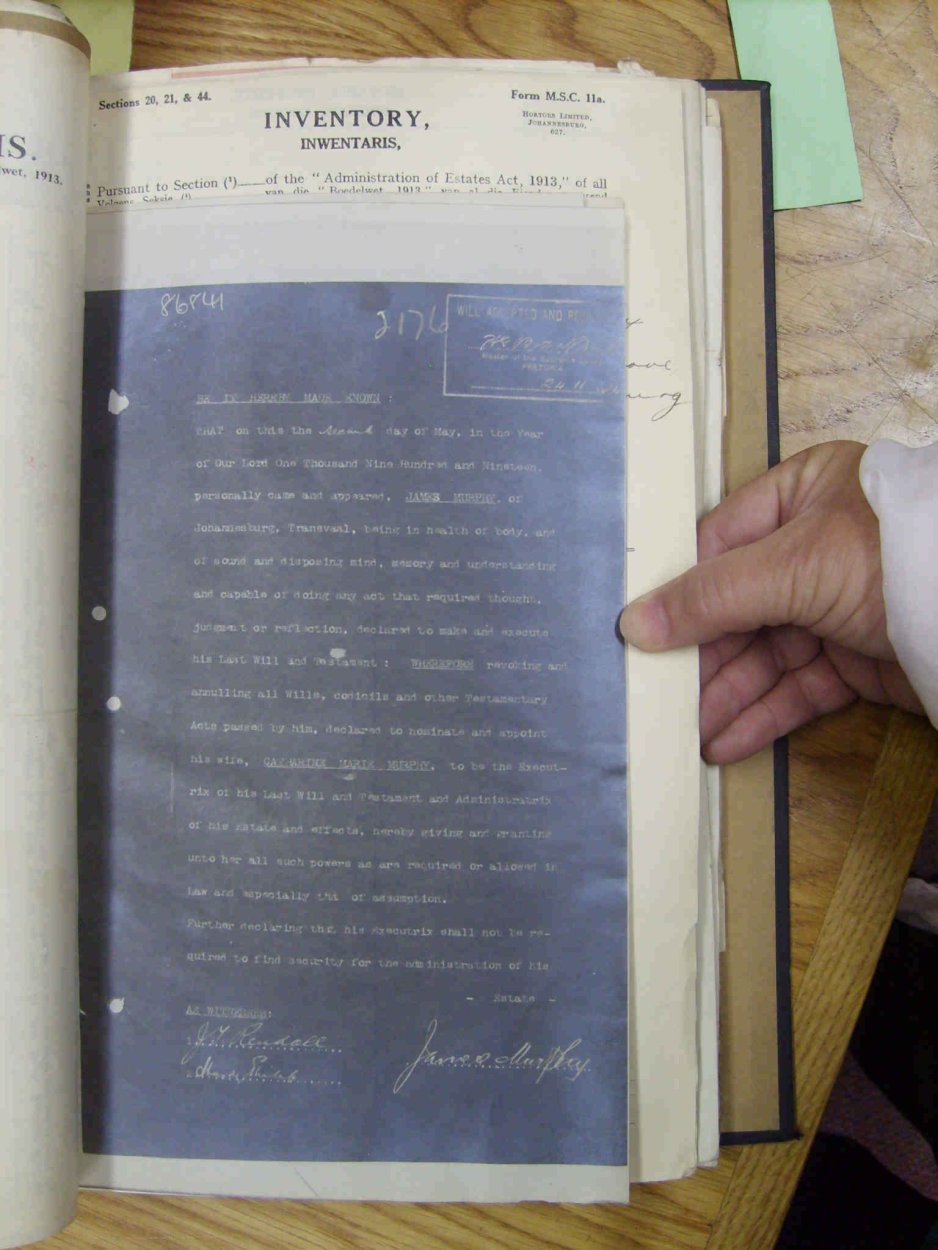 IS.
wet, 1913.
Sections 20, 21, & 44.
Form M.S.C. 11a.
HORTORS LIMITED,
JOHANNESBURG,
627.
INVENTORY,
INWENTARIS,
Pursuant to Section (¹)—of the "Administration of Estates Act, 1913," of all
Volgens Seksie (¹) van die "Boedelwet, 1913" van al die
86841
2176
WILL ACCEPTED AND
Master of the Supreme
PRETORIA
24 11
BE IT HEREBY MADE KNOWN :
THAT on this the second day of May, in the Year
of Our Lord One Thousand Nine Hundred and Nineteen,
personally came and appeared, JAMES MURPHY, of
Johannesburg, Transvaal, being in health of body, and
of sound and disposing mind, memory and understanding
and capable of doing any act that required thought,
judgment or reflection, declared to make and execute
his Last Will and Testament : WHEREFORE revoking and
annulling all Wills, codicils and other Testamentary
Acts passed by him, declared to nominate and appoint
his wife, CATHARINE MARIE MURPHY, to be the Execut-
rix of his Last Will and Testament and Administratrix
of his Estate and effects, hereby giving and granting
unto her all such powers as are required or allowed in
Law and especially that of assumption.
Further declaring that his Executrix shall not be re-
quired to find security for the administration of his
- Estate -
AS WITNESSES:
1. J. Rendall
2.
James Murphy